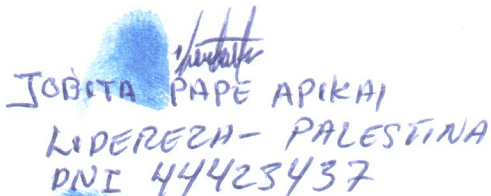 JOBITA PAPE APIKAI
LIDEREZA- PALESTINA
DNI 44423437